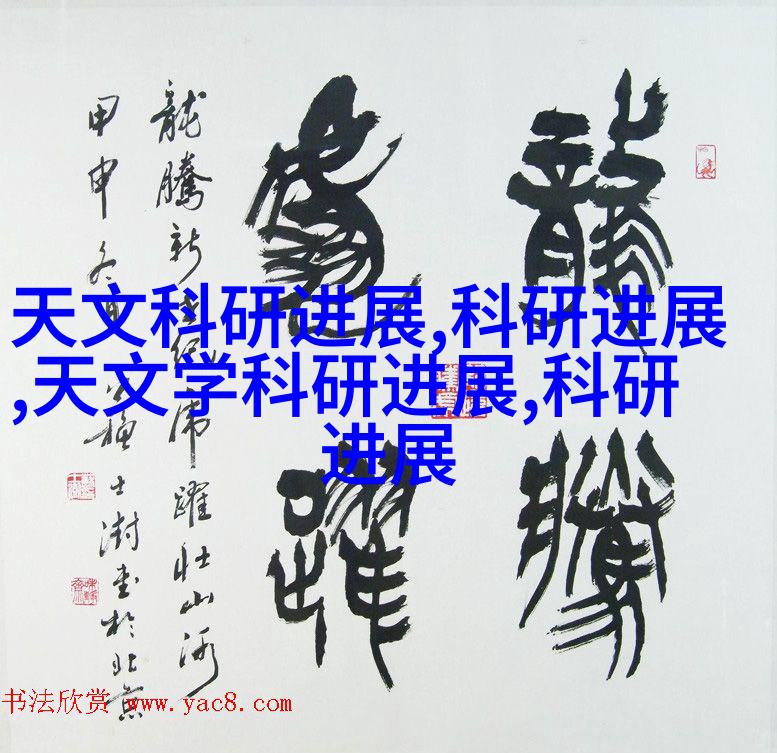 龍騰
虎躍
龍騰新世紀虎躍壮山河
甲申冬月蘇士澍书於北京
天文科研进展,科研进展
,天文学科研进展,科研
进展
书法欣赏 www.yac8.com